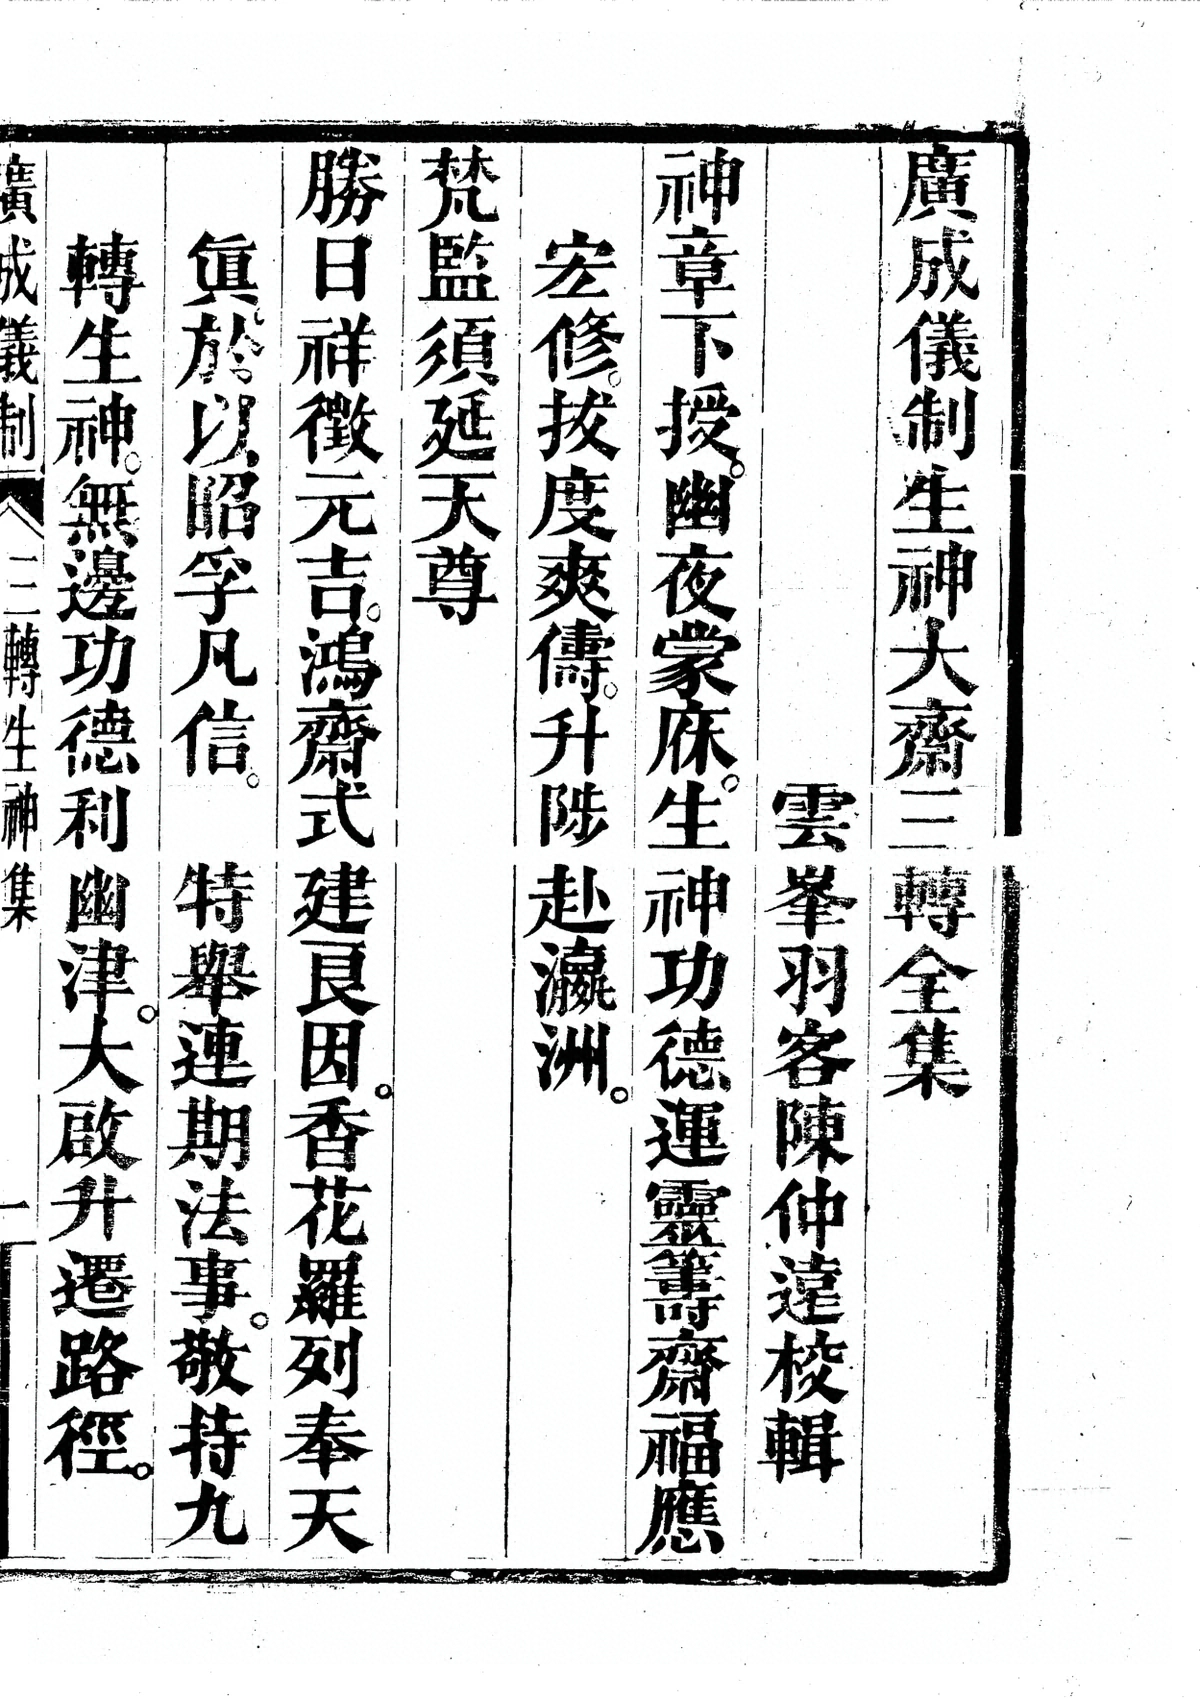 廣成儀制生神大齋三轉全集
雲峯羽客陳仲遠校輯
神章下授。幽夜蒙庥。生神功德運靈籌齋福應
宏修。拔度爽儔。升陟赴瀛洲。
梵監須延天尊
勝日祥徵元吉。鴻齋式建良因。香花羅列奉天
眞。於以昭孚凡信。　特舉連期法事。敬持九
轉生神。無邊功德利幽津。大啟升遷路徑。
廣成儀制　三轉生神集　一